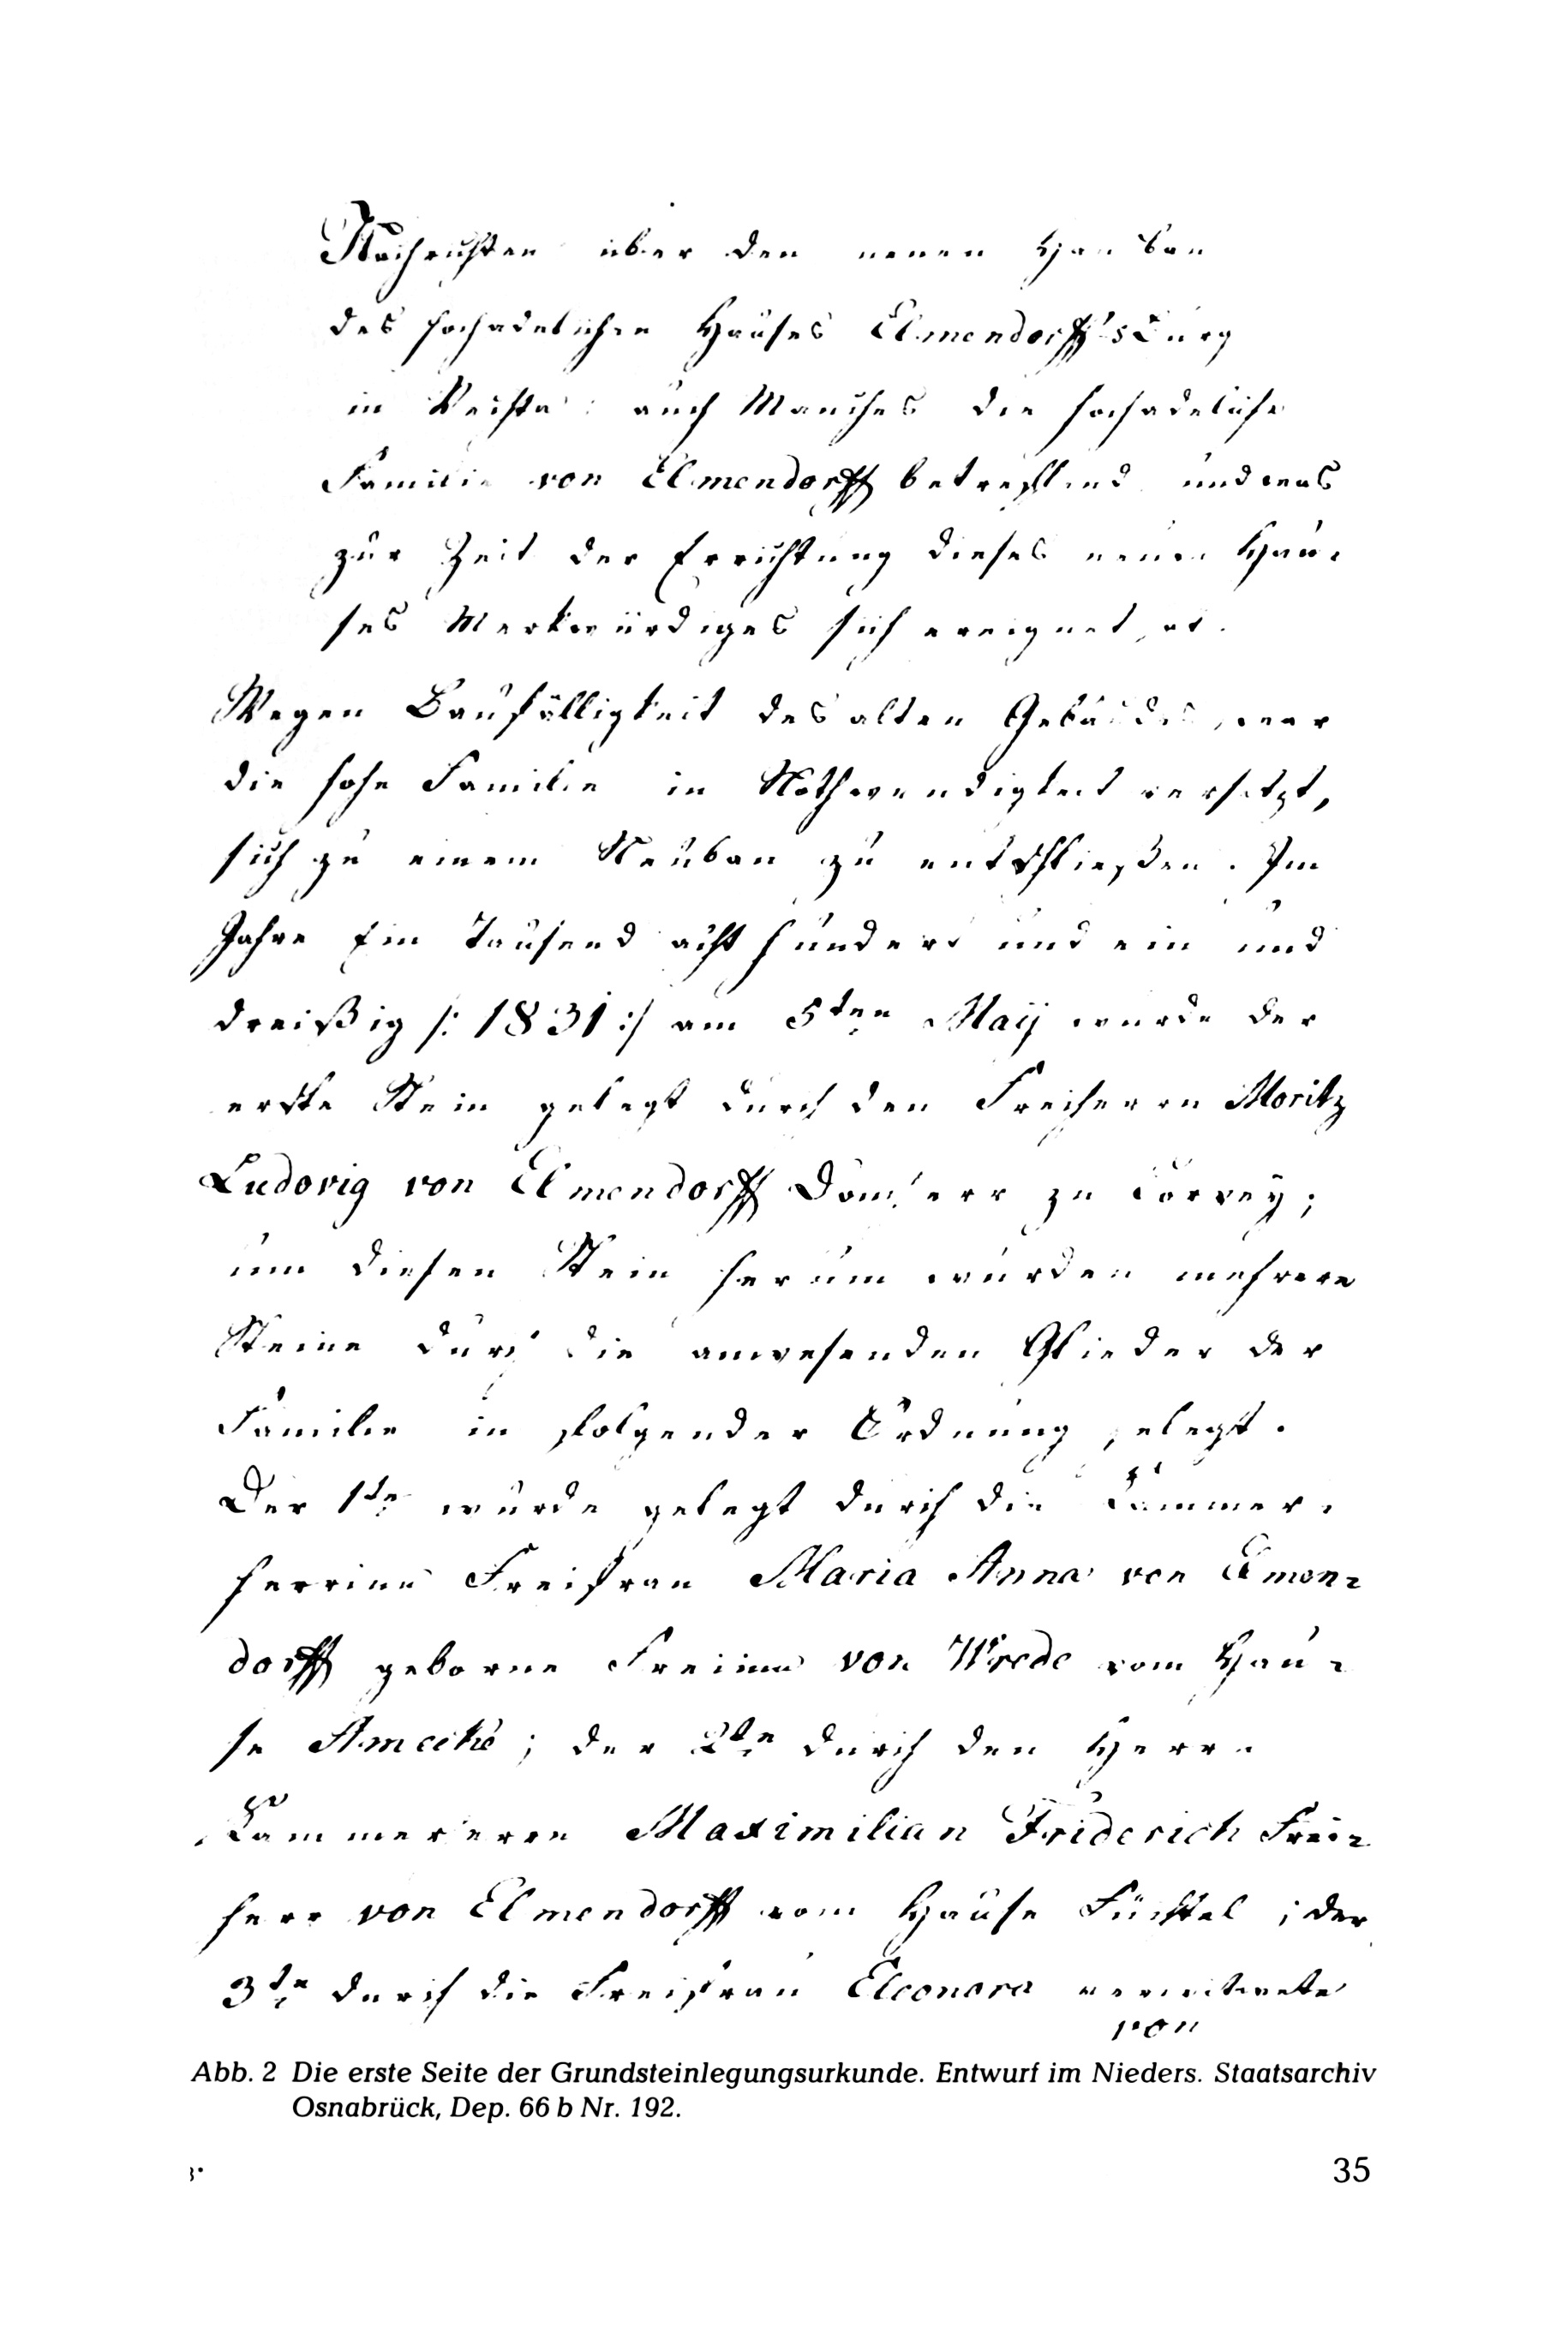 Nachrichten über den neuen Hausbau
des hochadelichen Hauses Elmendorff'sburg
in Vechta; auch Manches die hochadeliche
Familie von Elmendorff betreffend und was
zur Zeit der Errichtung dieses neuen Hau=
ses Merkwürdiges sich ereignet hat.
Wegen Baufälligkeit des alten Gebäudes, war
die hohe Familie in Nothwendigkeit versetzt,
sich zu einem Neubau zu entschließen. Im
Jahre Ein Tausend acht hundert und ein und
dreißig /: 1831 :/ am 5ten Maij wurde der
erste Stein gelegt durch den Freiherrn Moritz
Ludovig von Elmendorff Domherr zu Corvey;
um diesen Stein herum wurden mehrere
Steine durch die anwesenden Glieder der
Familie in folgender Ordnung gelegt.
Der 1te wurde gelegt durch die Kammer=
herrinn Freifrau Maria Anna von Elmen=
dorff geborne Freiinn von Wrede vom Hau=
se Amecke; der 2te durch den Herrn
Kammerherrn Maximilian Friderich Frei=
herr von Elmendorff vom Hause Füchtel; der
3te durch die Freifrau Eleonora verwitwete
von
Abb. 2 Die erste Seite der Grundsteinlegungsurkunde. Entwurf im Nieders. Staatsarchiv
Osnabrück, Dep. 66 b Nr. 192.
35